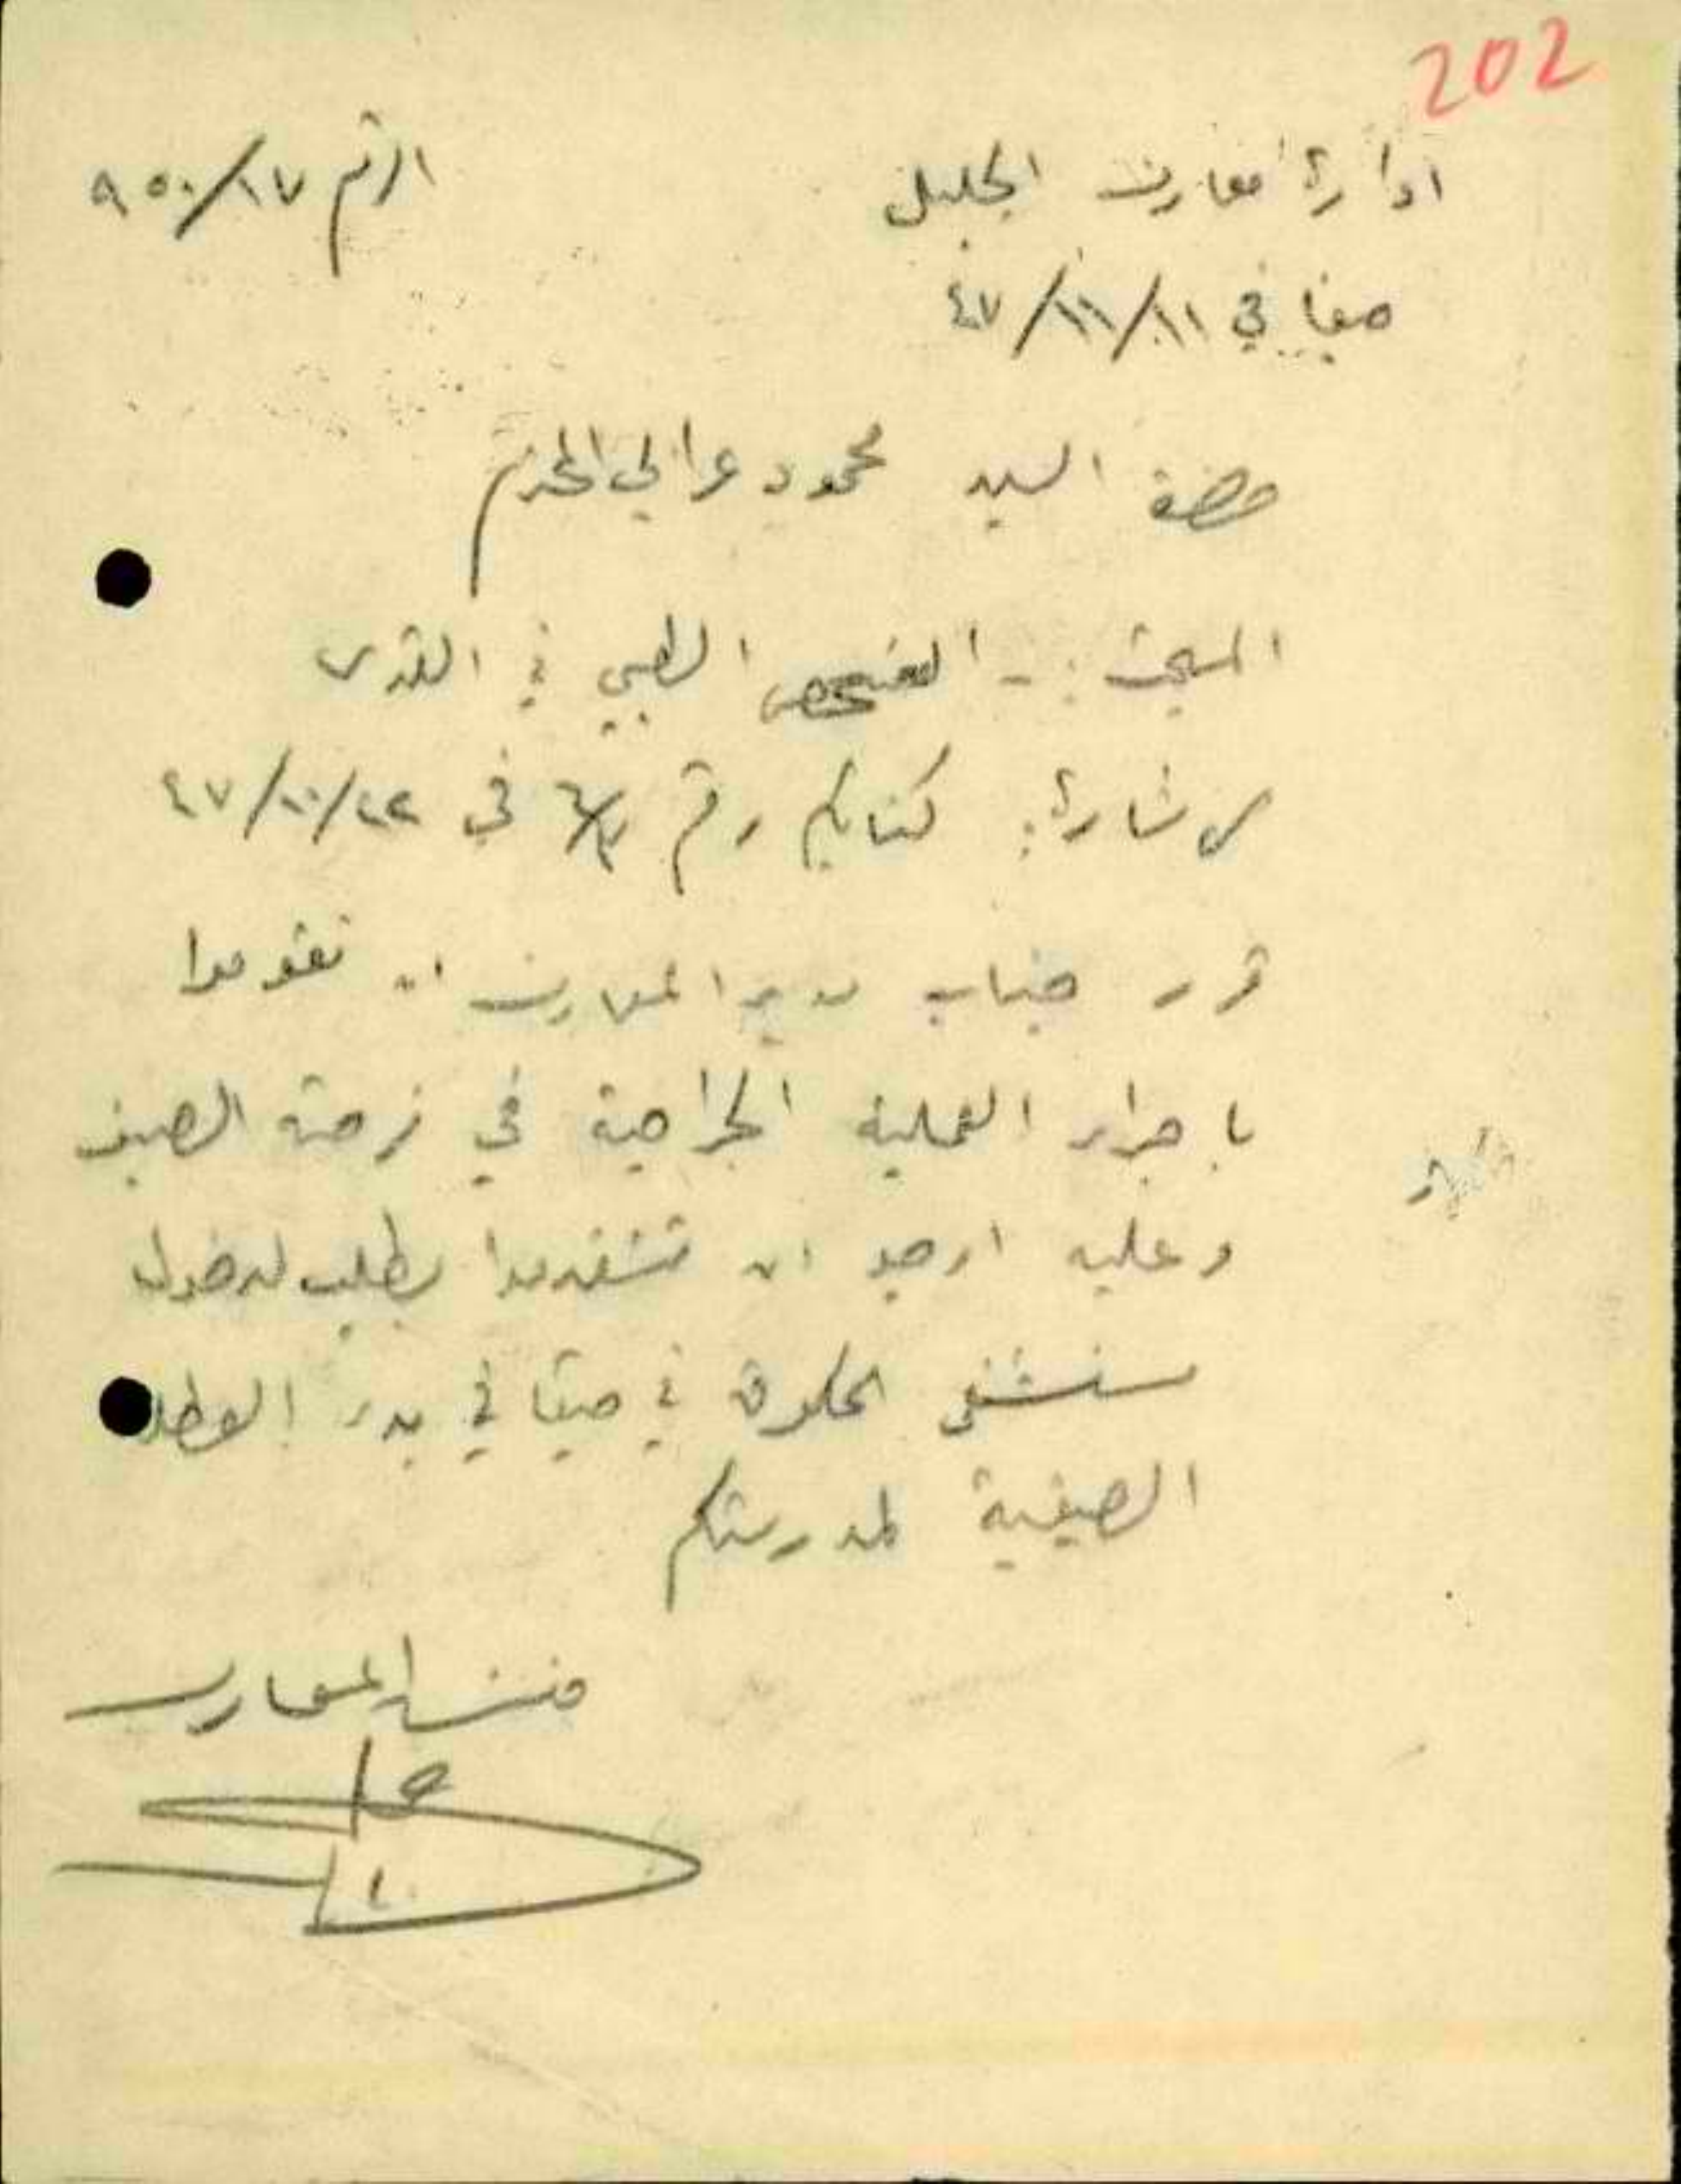 202
ادارة معارف الجليل
الرقم ٩٥٠/١٧
حيفا في ١١/١١/٤٧
حضرة السيد محمود عرابي المحترم
المبحث :- الفحص الطبي في القدس
الاشارة: كتابكم رقم في ٢٢/١٠/٤٧
قرر جناب مدير المعارف ان تقوموا
باجراء العملية الجراحية في فرصة الصيف
وعليه ارجو ان تتقدموا بطلب لدخول
مستشفى الحكومة في حيفا في بدء العطلة
الصيفية لمدرستكم
مفتش المعارف